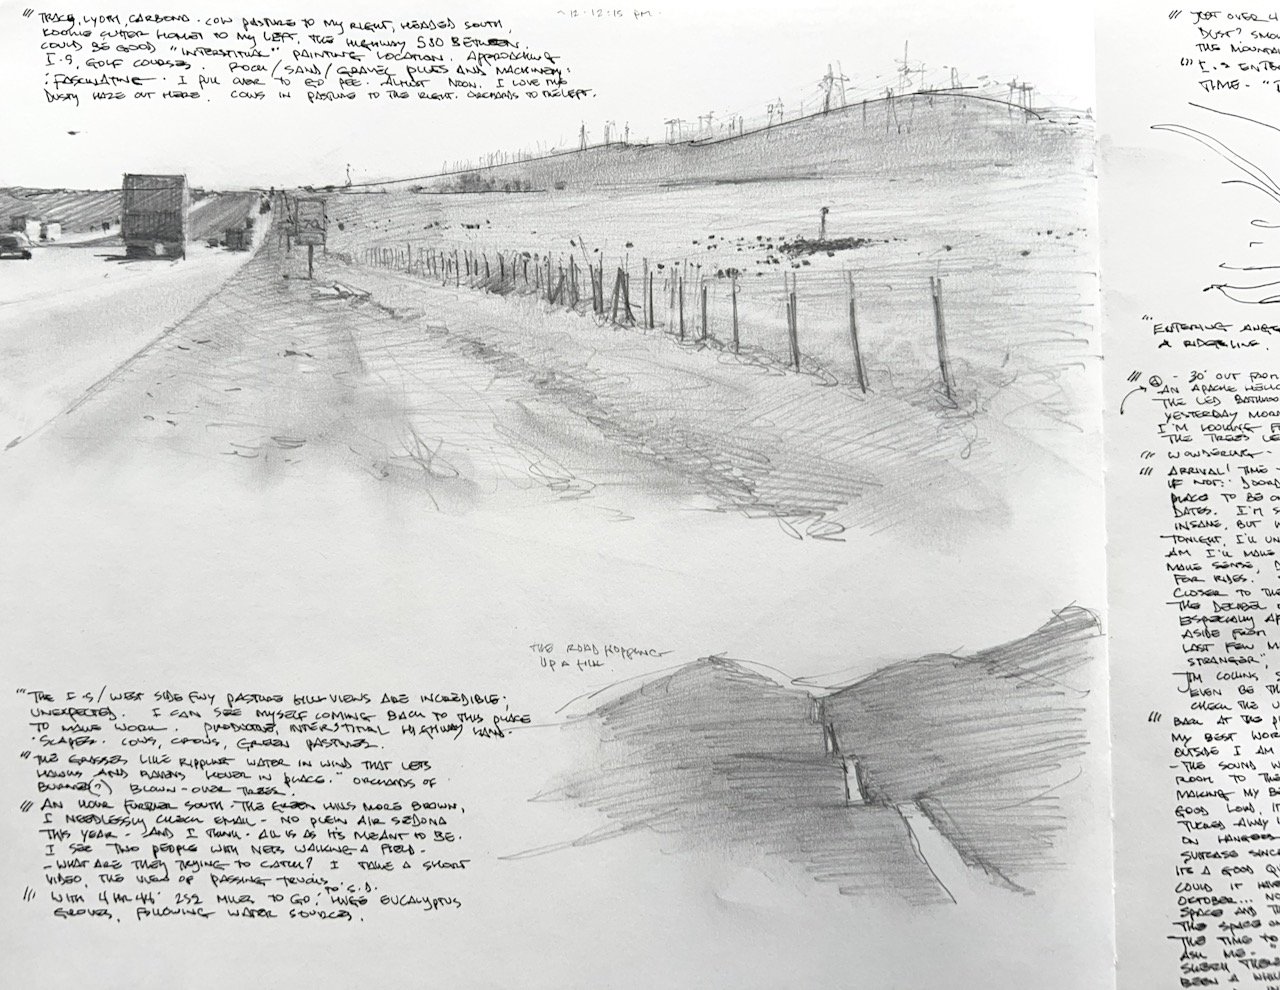 ~12·12:15 pm·
''' TRACY, LYOTH, CARBONA · COW PASTURE TO MY RIGHT, HEADED SOUTH,
COOKIE CUTTER HOMES TO MY LEFT, THE HIGHWAY 580 BETWEEN.
COULD BE GOOD "INTERSTITIAL" PAINTING LOCATION. APPROACHING
I-5, GOLF COURSES. ROCK/SAND/GRAVEL PILES AND MACHINERY:
FASCINATING. I PULL OVER TO GO PEE. ALMOST NOON. I LOVE THE
DUSTY HAZE OUT HERE. COWS IN PASTURE TO THE RIGHT. ORCHARDS TO THE LEFT.
THE ROAD HOPPING
UP A HILL
''' THE I-5/WEST SIDE FWY PASTURE HILL VIEWS ARE INCREDIBLE;
UNEXPECTED. I CAN SEE MYSELF COMING BACK TO THIS PLACE
TO MAKE WORK. PRODUCTIVE, INTERSTITIAL HIGHWAY LAND-
SCAPES. COWS, CROWS, GREEN PASTURES.
"THE GRASSES LIKE RIPPLING WATER IN WIND THAT LETS
HAWKS AND RAVENS HOVER IN PLACE." ORCHARDS OF
BURNED(?) BLOWN-OVER TREES.
/// AN HOUR FURTHER SOUTH. THE GREEN HILLS MORE BROWN,
I NEEDLESSLY CHECK EMAIL - NO PLEIN AIR SEDONA
THIS YEAR - AND I THINK - ALL IS AS IT'S MEANT TO BE.
I SEE TWO PEOPLE WITH NETS WALKING A FIELD -
- WHAT ARE THEY TRYING TO CATCH? I TAKE A SHORT
VIDEO, THE VIEW OF PASSING TRUCKS
/// WITH 4 HR 44' 252 MILES TO GO, TO S.D. HUGE EUCALYPTUS
GROVES, FOLLOWING WATER SOURCES.
''' JUST OVER 4
DUST? SMO
THE MOUNTA
''' I-5 ENTE
TIME - "
''' ENTERING ANGE
A RIDGELINE.
/// - 30' OUT FROM
AN APACHE HELIC
THE LED BATHROO
YESTERDAY MORN
I'M LOOKING F
THE TREES LE
''' WONDERING -
/// ARRIVAL! TIME -
IF NOT:
PLACE TO BE O
DATES. I'M S
INSANE, BUT
TONIGHT, I'LL UN
AM I'LL MAKE
MAKE SENSE,
FOR RIDES.
CLOSER TO THE
THE DECIBEL
ESPECIALLY AF
ASIDE FROM
LAST FEW M
STRANGER",
JIM COLLINS, S
EVEN BE TH
CHECK THE
/// BACK AT THE P
MY BEST WOR
OUTSIDE I AM
- THE SOUND W
ROOM TO THE
MAKING MY BE
GOOD LORD, IT
TUCKED AWAY
ON HANGERS
SUITCASE SINCE
IT'S A GOOD QU
COULD IT HAVE
OCTOBER... NO
SPACE AND T
THE SPACE
THE TIME TO
ASK ME - "
THERE
BEEN A WHIL